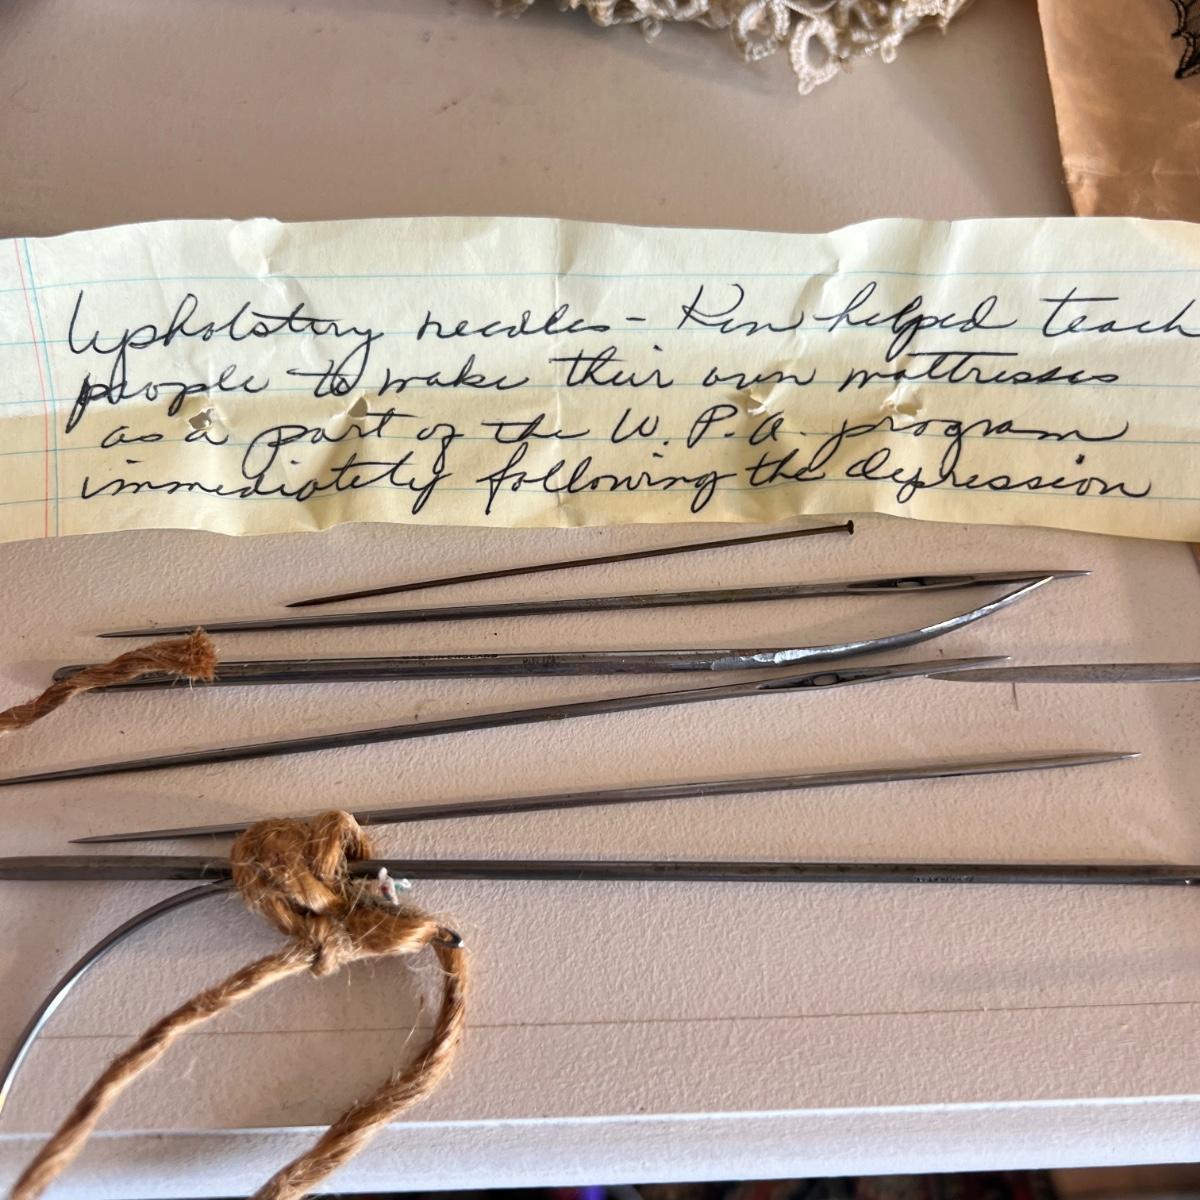 Upholstery needles - Ken helped teach
people to make their own mattresses
as a part of the W. P. A. program
immediately following the depression